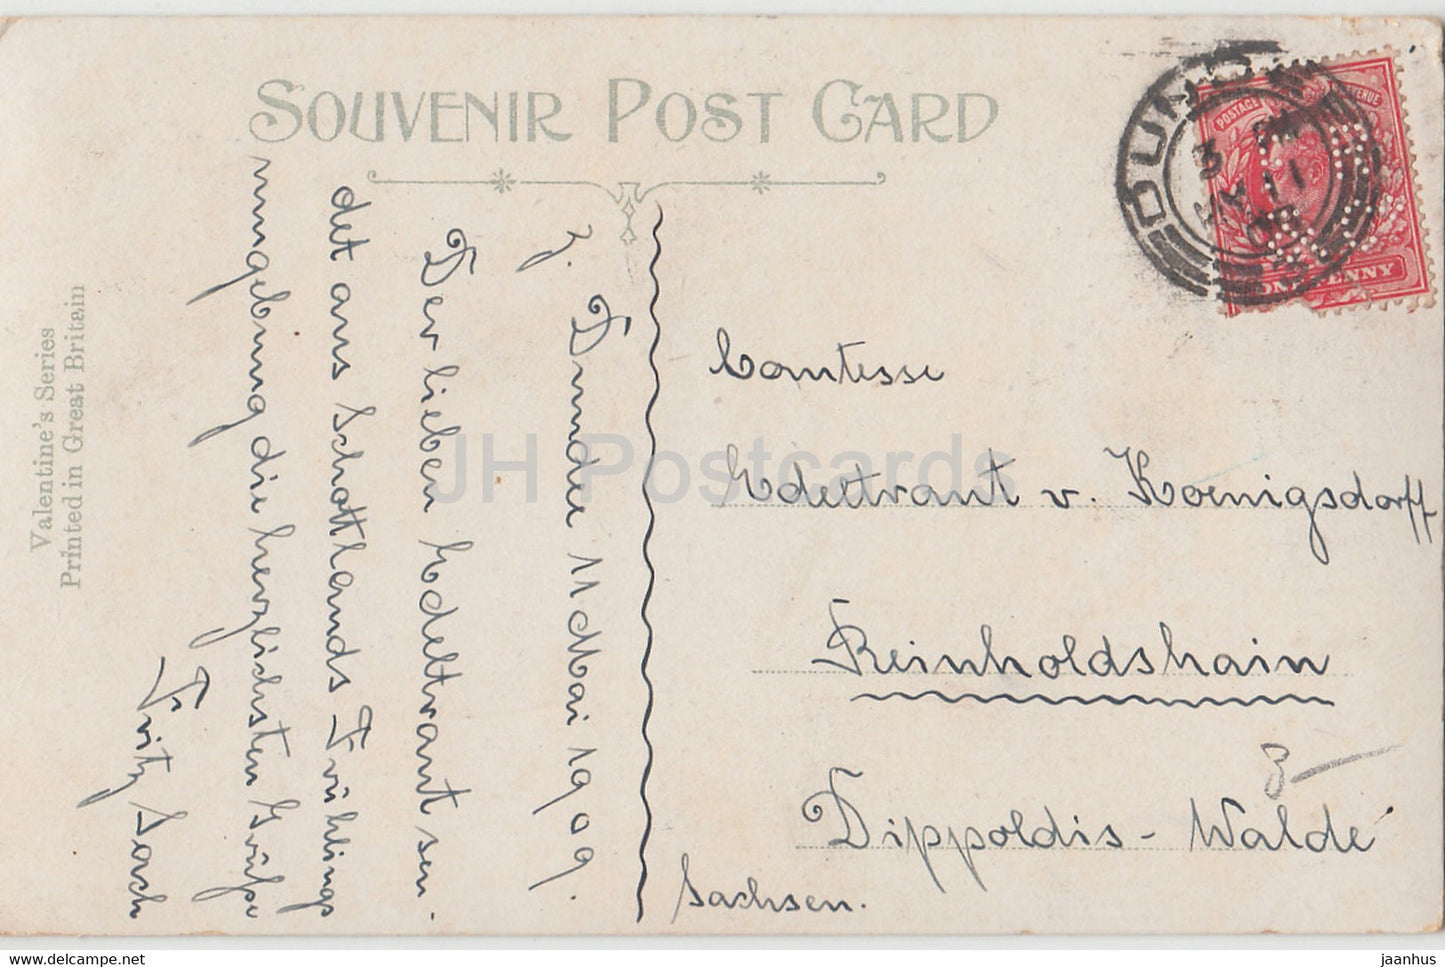 SOUVENIR POST CARD
Valentine's Series
Printed in Great Britain
z. Dundee 11 Mai 1909.
Der lieben Edeltraut sen-
det aus Schottlands Frühlings
umgebung die herzlichsten Grüße
Fritz
Comtesse
Edeltraut v. Koenigsdorff
Reinholdshain
Dippoldis-Walde
Sachsen.
8
DUNDEE
MY 11
09
POSTAGE REVENUE
ONE PENNY
JH Postcards
www.delcampe.net
jaanhus